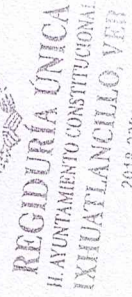 REGIDURÍA ÚNICA
H. AYUNTAMIENTO CONSTITUCIONAL
IXHUATLANCILLO, VER